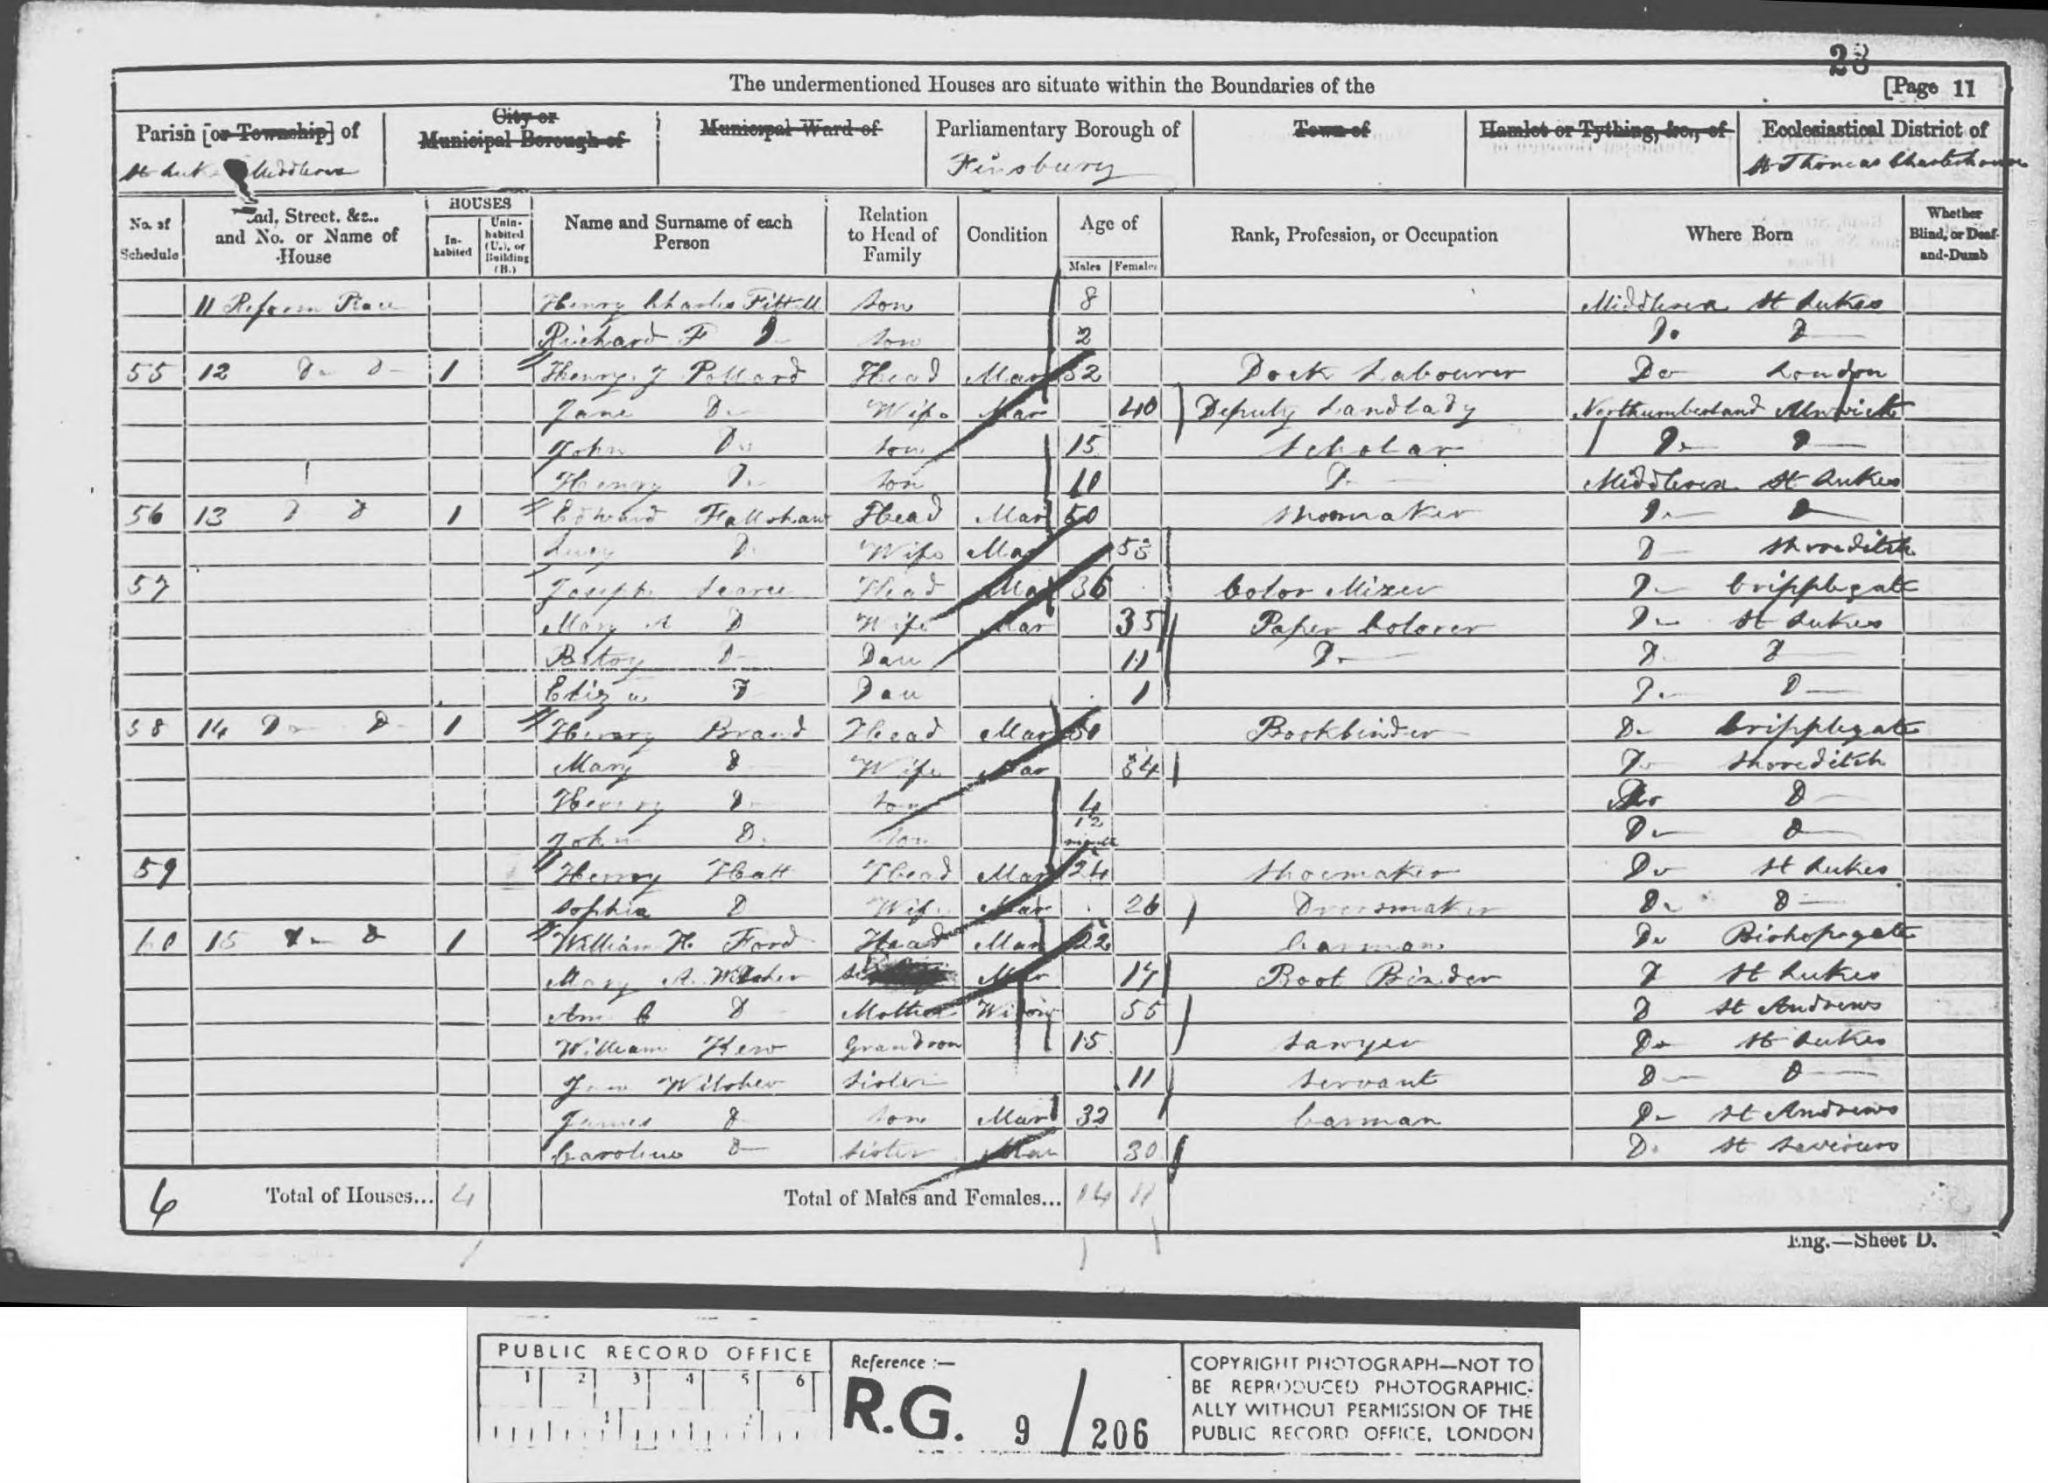 28
The undermentioned Houses are situate within the Boundaries of the
[Page 11
Parish [or Township] of
City or Municipal Borough of
Municipal Ward of
Parliamentary Borough of
Town of
Hamlet or Tything, &c., of
Ecclesiastical District of
St Luke Middlesex
Finsbury
St Thomas Charterhouse
No. of Schedule
Road, Street, &c., and No. or Name of House
HOUSES
In-habited
Unin-habited (U.), or Building (B.)
Name and Surname of each Person
Relation to Head of Family
Condition
Age of
Males
Females
Rank, Profession, or Occupation
Where Born
Whether Blind, or Deaf-and-Dumb
11 Reform Place Henry Charles son 8 Middlesex St Lukes
Richard F Do son 2 Do Do
55 12 Do Do 1 Henry J Pollard Head Mar 52 Dock Labourer Do London
Jane Do Wife Mar 40 Deputy Landlady Northumberland Alnwick
John Do son 15 Scholar Do Do
Henry Do son 11 Do Middlesex St Lukes
56 13 D D 1 Edward Fallshaw Head Mar 50 Shoemaker Do D
Lucy D Wife Mar 53 D Shoreditch
57 Joseph Searce Head Mar 36 Color Mixer Do Cripplegate
Mary A D Wife Mar 35 Paper Colorer Do St Lukes
Betsy D Dau 11 Do D D
Eliza D Dau 1 Do D
58 14 Do D 1 Henry Brand Head Mar 31 Bookbinder Do Cripplegate
Mary D Wife Mar 34 Do Shoreditch
Henry Do son 4 Do D
John D son 12 Do D
59 Henry Hatt Head Mar 24 Shoemaker Do St Lukes
Sophia D Wife Mar 26 Dressmaker Do D
60 15 Do D 1 William H. Ford Head Mar 22 Carman Do Bishopsgate
Mary A. Wilsher Mar 17 Boot Binder D St Lukes
Ann C D Mother Widow 55 D St Andrews
William Kew Grandson 15 Sawyer Do St Lukes
Jane Wilsher Sister 11 Servant D D
James D son Mar 32 Carman Do St Andrews
Caroline D Sister Mar 30 Do St Saviours
4 Total of Houses... 4 Total of Males and Females... 14 11
Eng.—Sheet D.
PUBLIC RECORD OFFICE
1 2 3 4 5 6
Reference :—
R.G. 9 / 206
COPYRIGHT PHOTOGRAPH—NOT TO
BE REPRODUCED PHOTOGRAPHIC-
ALLY WITHOUT PERMISSION OF THE
PUBLIC RECORD OFFICE, LONDON